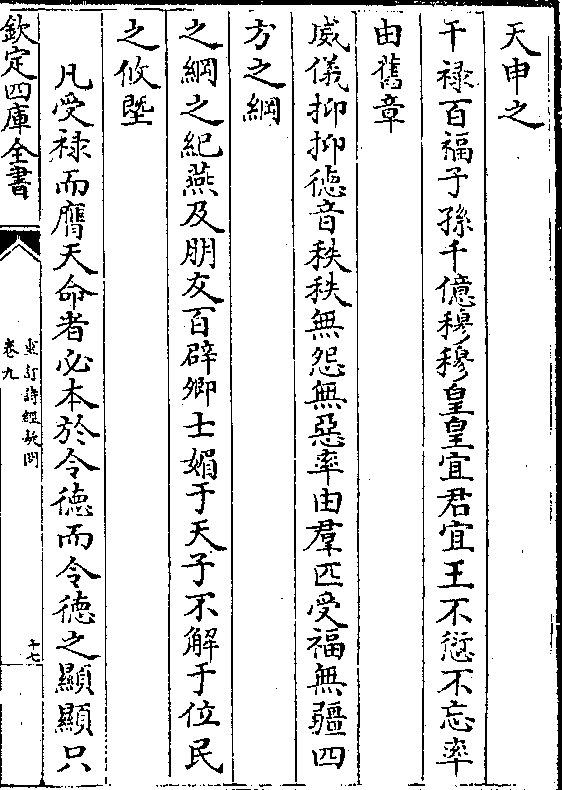 天申之
干禄百福子孫千億穆穆皇皇宜君宜王不愆不忘率
由舊章
威儀抑抑徳音秩秩無怨無惡率由羣匹受福無疆四
方之綱
之綱之紀燕及朋友百辟卿士媚于天子不解于位民
之攸塈
凡受禄而膺天命者必本於令徳而令徳之顯顯只
欽定四庫全書
重訂詩經疑問
卷九
十七